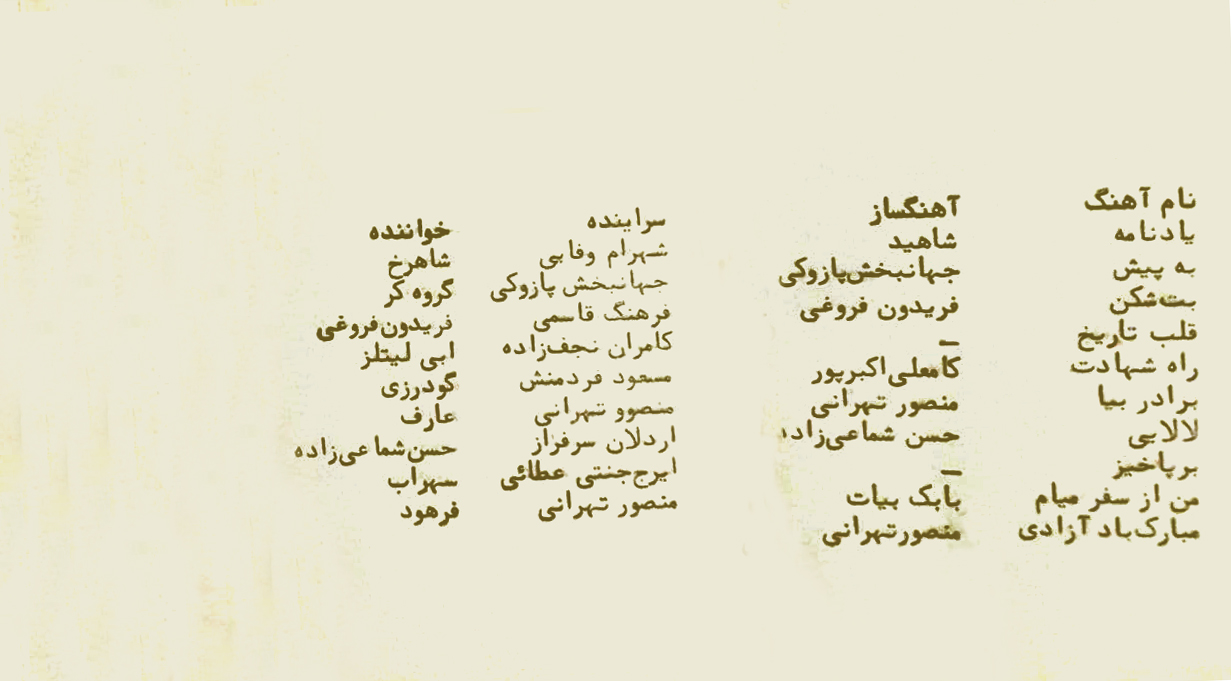 نام آهنگ
یادنامه
به پیش
بت‌شکن
قلب تاریخ
راه شهادت
برادر بیا
لالایی
برپاخیز
من از سفر میام
مبارک‌باد آزادی
آهنگساز
شاهید
جهانبخش‌پازوکی
فریدون فروغی
—
کامعلی اکبرپور
منصور تهرانی
حسن شماعی‌زاده
—
بابک بیات
منصورتهرانی
سراینده
شهرام وفایی
جهانبخش پازوکی
فرهنگ قاسمی
کامران نجف‌زاده
مسعود فردمنش
منصوو تهرانی
اردلان سرفراز
ایرج‌جنتی عطائی
منصور تهرانی
خواننده
شاهرخ
گروه کر
فریدون‌فروغی
ابی لیتلز
گودرزی
عارف
حسن‌شماعی‌زاده
سهراب
فرهود